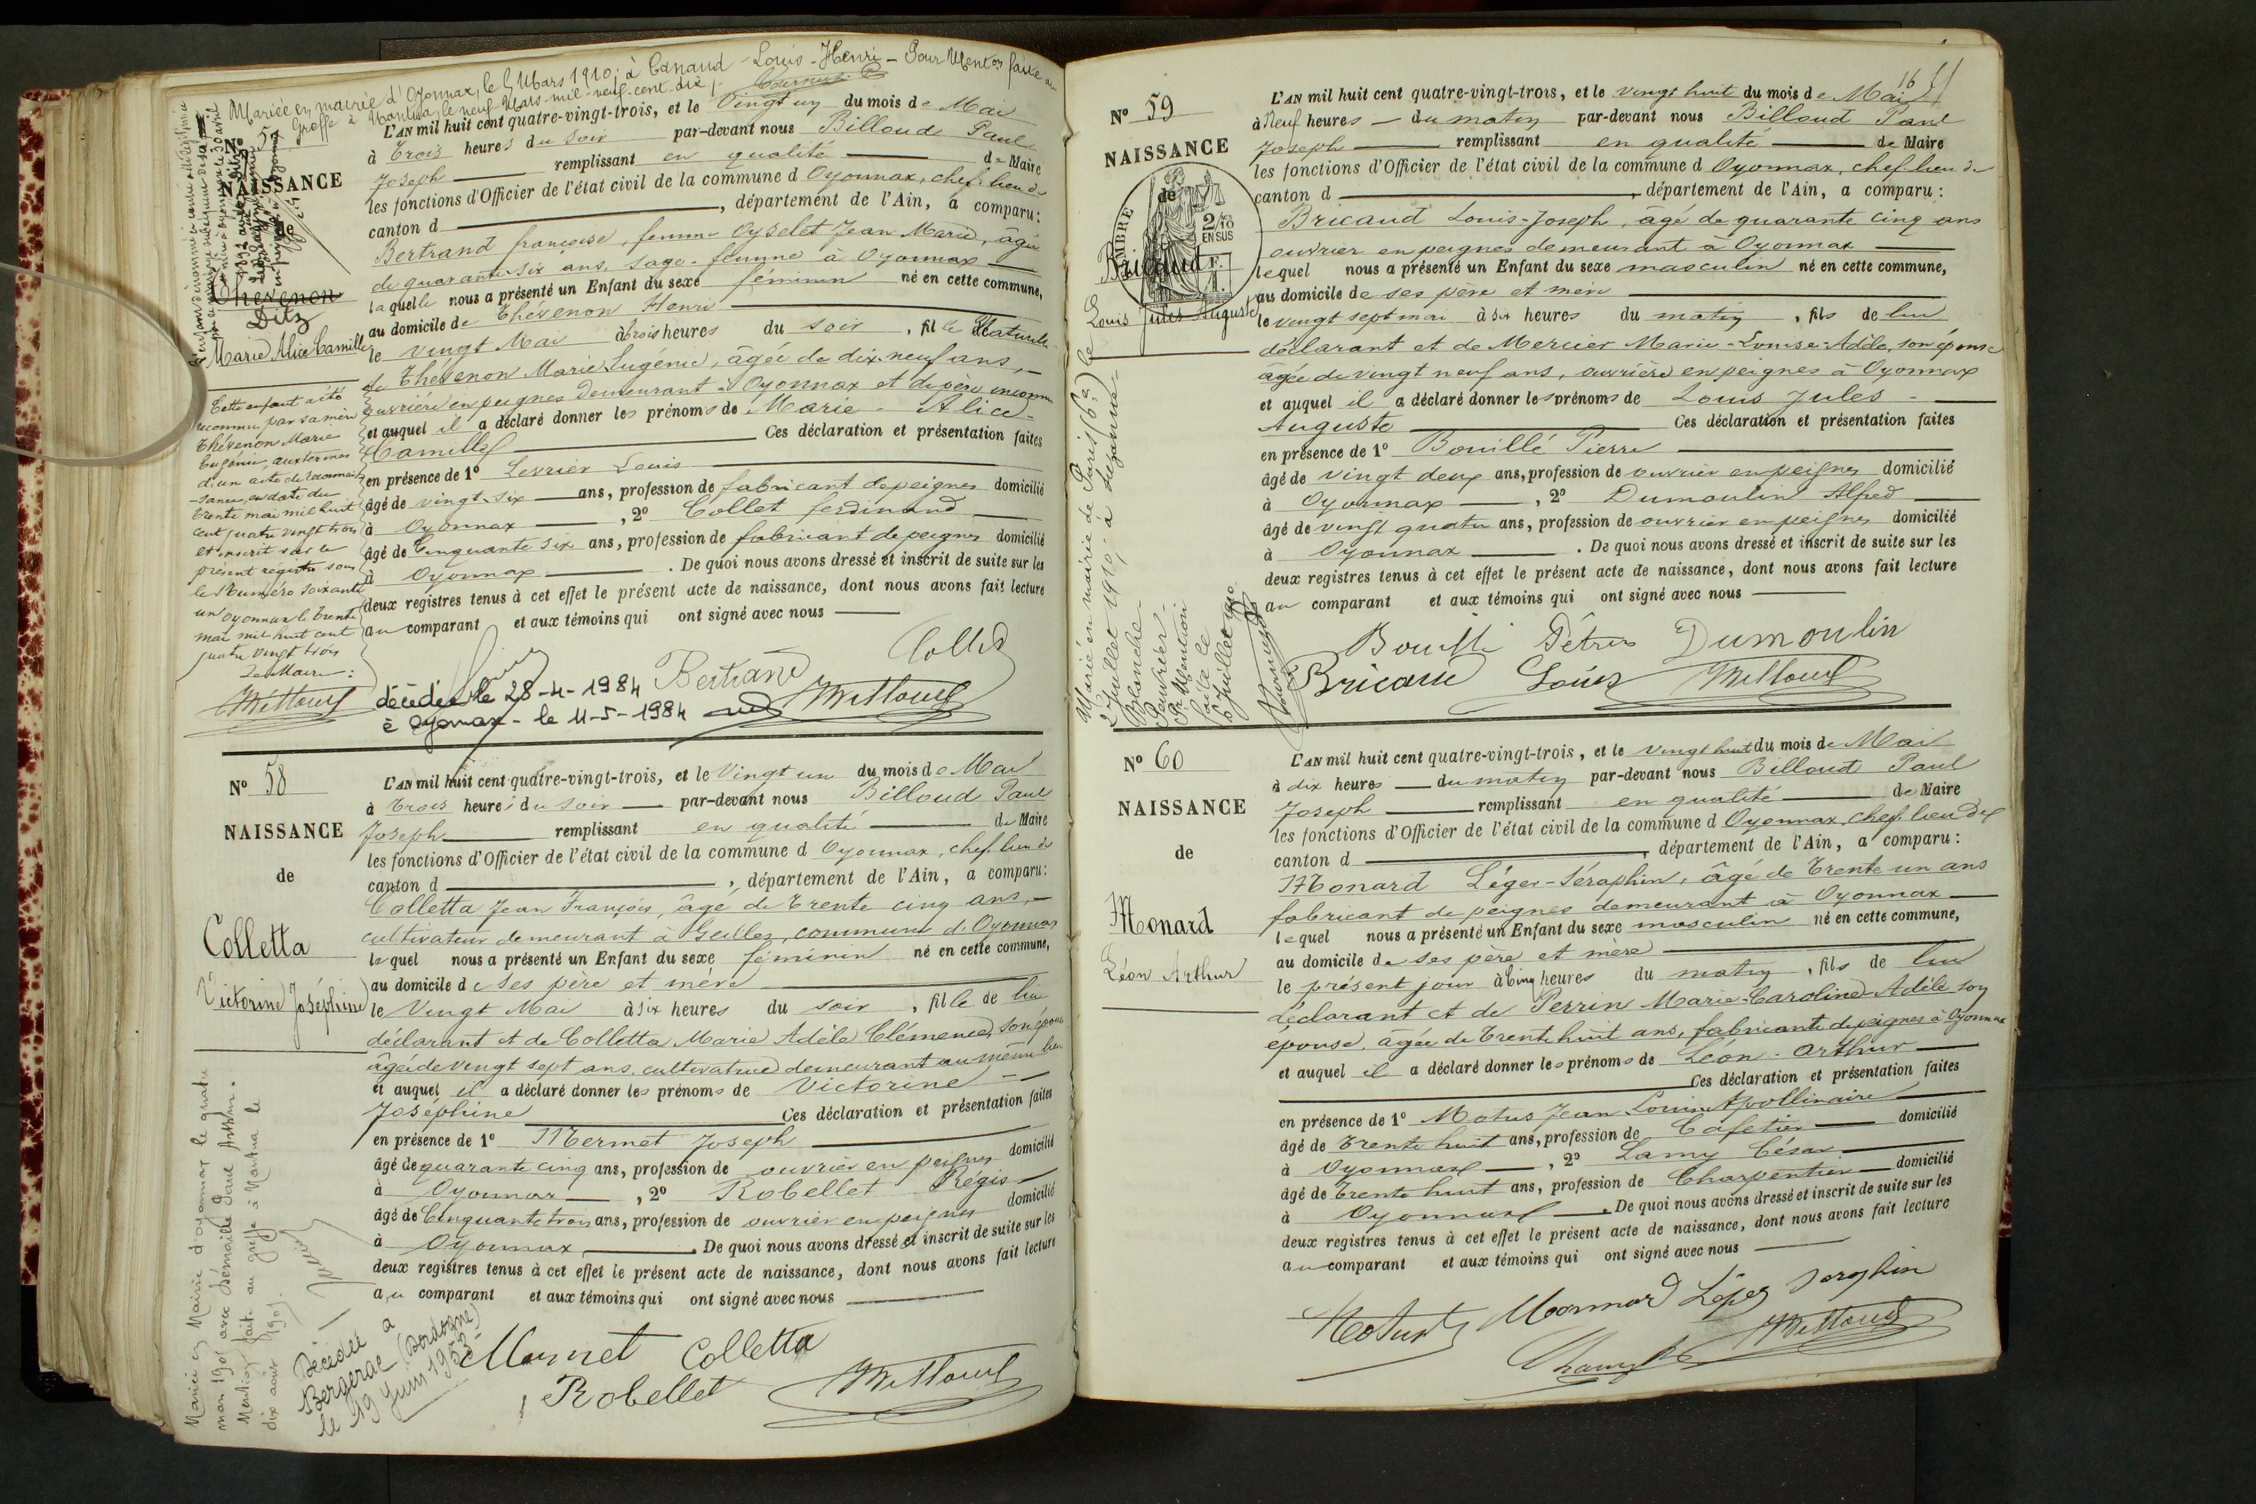 Mariée en mairie d'Oyonnax, le 5 Mars 1910; à Canaud - Louis - Henri - Pour Mention faite au
Greffe à Nantua, le neuf Mars mil neuf cent dix
N° 57
NAISSANCE
de
Thevenon
Ditz
Marie Alice Camille
Cette enfant a été
reconnue par sa mère
Thévenon Marie
Eugénie, aux termes
d'un acte de reconnais
-sance en date du
trente mai mil huit
cent quatre vingt trois
et inscrit sur le
présent registre sous
le Numéro soixante
un Oyonnax le trente
mai mil huit cent
quatre vingt trois
Le Maire:
L'AN mil huit cent quatre-vingt-trois, et le Vingt un du mois de Mai
à trois heures du soir par-devant nous Billoud Paul
Joseph remplissant en qualité de Maire
les fonctions d'Officier de l'état civil de la commune d Oyonnax, chef lieu de
canton d , département de l'Ain, a comparu:
Bertrand françoise, femme Oyselet Jean Marie, âgée
de quarante six ans, sage-femme à Oyonnax
laquelle nous a présenté un Enfant du sexe féminin né en cette commune,
au domicile de Thevenon Henri
le vingt Mai à trois heures du soir, fille Naturelle
de Thevenon Marie Eugénie, âgée de dix neuf ans,
ouvrière en peignes demeurant à Oyonnax et de père inconnu
et auquel il a déclaré donner les prénoms de Marie - Alice -
Camille Ces déclaration et présentation faites
en présence de 1° Levrier Louis
âgé de vingt-six ans, profession de fabricant de peignes domicilié
à Oyonnax, 2° Collet ferdinand
âgé de Cinquante six ans, profession de fabricant de peignes domicilié
à Oyonnax. De quoi nous avons dressé et inscrit de suite sur les
deux registres tenus à cet effet le présent acte de naissance, dont nous avons fait lecture
au comparant et aux témoins qui ont signé avec nous
Collet
Bertrand
décédée le 28-4-1984
à Oyonnax - le 11-5-1984
N° 58
NAISSANCE
de
Colletta
Victorine Joséphine
L'AN mil huit cent quatre-vingt-trois, et le Vingt un du mois de Mai
à trois heures du soir par-devant nous Billoud Paul
Joseph remplissant en qualité de Maire
les fonctions d'Officier de l'état civil de la commune d Oyonnax, chef lieu de
canton d , département de l'Ain, a comparu:
Colletta Jean François, âgé de trente cinq ans,
cultivateur demeurant à Geilles, commune d'Oyonnax
lequel nous a présenté un Enfant du sexe féminin né en cette commune,
au domicile de ses père et mère
le Vingt Mai à six heures du soir, fille de lui
déclarant et de Colletta Marie Adèle Clémence, son épouse
âgée de vingt sept ans, cultivatrice demeurant au même lieu
et auquel il a déclaré donner les prénoms de Victorine -
Joséphine Ces déclaration et présentation faites
en présence de 1° Mermet Joseph
âgé de quarante cinq ans, profession de ouvrier en peignes domicilié
à Oyonnax, 2° Robellet Régis
âgé de Cinquante trois ans, profession de ouvrier en peignes domicilié
à Oyonnax. De quoi nous avons dressé et inscrit de suite sur les
deux registres tenus à cet effet le présent acte de naissance, dont nous avons fait lecture
au comparant et aux témoins qui ont signé avec nous
Mariée en Mairie d'Oyonnax le quatre
mars 1905 avec Paul Arthur.
Mention faite au greffe à Nantua le
dix août 1905.
Décédée à
Bergerac (Dordogne)
le 19 Juin 1953
Mermet Colletta
Robellet
16
N° 59
NAISSANCE
de
TIMBRE
2/10
EN SUS
Bricaud
Louis Jules Auguste
Marié en mairie de Paris (6e) le
2 Juillet 1910, à
Blanche
Pr Mention
faite le
6 Juillet 1910
L'AN mil huit cent quatre-vingt-trois, et le vingt huit du mois de Mai
à Neuf heures du matin par-devant nous Billoud Paul
Joseph remplissant en qualité de Maire
les fonctions d'Officier de l'état civil de la commune d Oyonnax, chef lieu de
canton d , département de l'Ain, a comparu:
Bricaud Louis-Joseph, âgé de quarante cinq ans
ouvrier en peignes demeurant à Oyonnax
lequel nous a présenté un Enfant du sexe masculin né en cette commune,
au domicile de ses père et mère
le vingt sept mai à six heures du matin, fils de lui
déclarant et de Mercier Marie-Louise-Adèle, son épouse
âgée de vingt neuf ans, ouvrière en peignes à Oyonnax
et auquel il a déclaré donner les prénoms de Louis Jules -
Auguste Ces déclaration et présentation faites
en présence de 1° Bouillé Pierre
âgé de vingt deux ans, profession de ouvrier en peignes domicilié
à Oyonnax, 2° Dumoulin Alfred
âgé de vingt quatre ans, profession de ouvrier en peignes domicilié
à Oyonnax. De quoi nous avons dressé et inscrit de suite sur les
deux registres tenus à cet effet le présent acte de naissance, dont nous avons fait lecture
au comparant et aux témoins qui ont signé avec nous
Dumoulin
Bricaud Louis
N° 60
NAISSANCE
de
Monard
Léon Arthur
L'AN mil huit cent quatre-vingt-trois, et le vingt huit du mois de Mai
à dix heures du matin par-devant nous Billoud Paul
Joseph remplissant en qualité de Maire
les fonctions d'Officier de l'état civil de la commune d Oyonnax, chef lieu de
canton d , département de l'Ain, a comparu:
Monard Léger-Séraphin, âgé de trente un ans
fabricant de peignes demeurant à Oyonnax
lequel nous a présenté un Enfant du sexe masculin né en cette commune,
au domicile de ses père et mère
le présent jour à Cinq heures du matin, fils de lui
déclarant et de Perrin Marie-Caroline-Adèle son
épouse, âgée de trente huit ans, fabricante de peignes à Oyonnax
et auquel il a déclaré donner les prénoms de Léon - Arthur
Ces déclaration et présentation faites
en présence de 1° Motus Jean Louis Apollinaire
âgé de trente huit ans, profession de Cafetier domicilié
à Oyonnax, 2° Lamy César
âgé de trente huit ans, profession de Charpentier domicilié
à Oyonnax. De quoi nous avons dressé et inscrit de suite sur les
deux registres tenus à cet effet le présent acte de naissance, dont nous avons fait lecture
au comparant et aux témoins qui ont signé avec nous